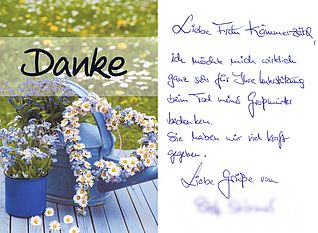 Danke
Liebe Frau Kömmerzüg,
ich möchte mich wirklich
ganz sehr für Ihre Unterstützung
beim Tod meines Großvaters
bedanken.
Sie haben mir viel Kraft
gegeben.
Liebe Grüße von